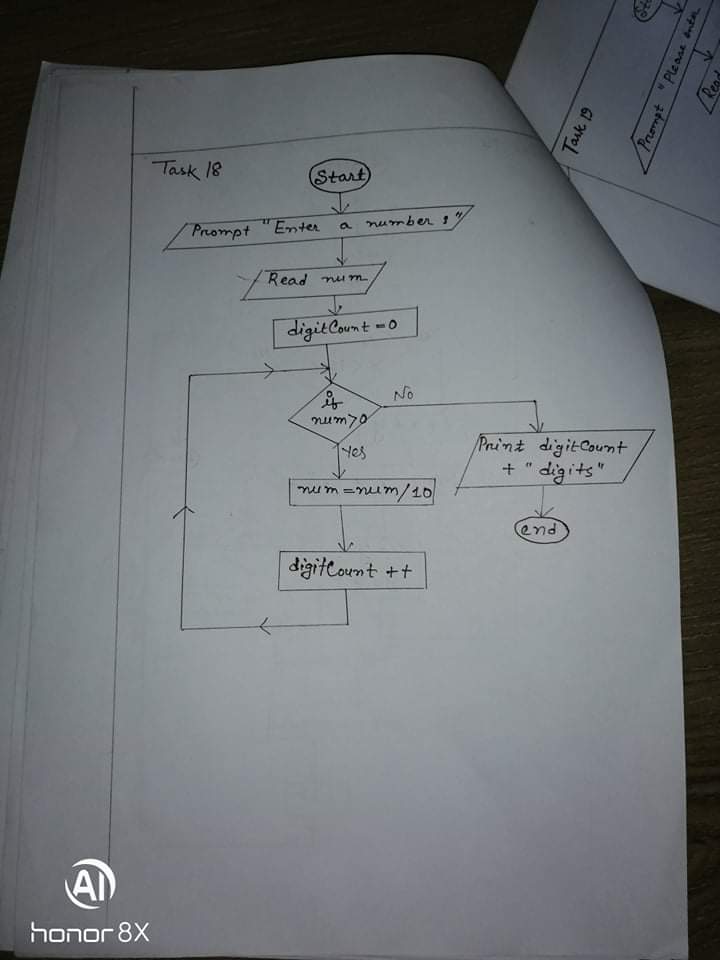 Task 18
Start
Prompt "Enter a number :"
Read num
digitCount = 0
if
num>0
No
Yes
Print digitCount
+ "digits"
num = num/10
end
digitCount ++
Task 19
Prompt "Please enter
Read
AI
honor 8X